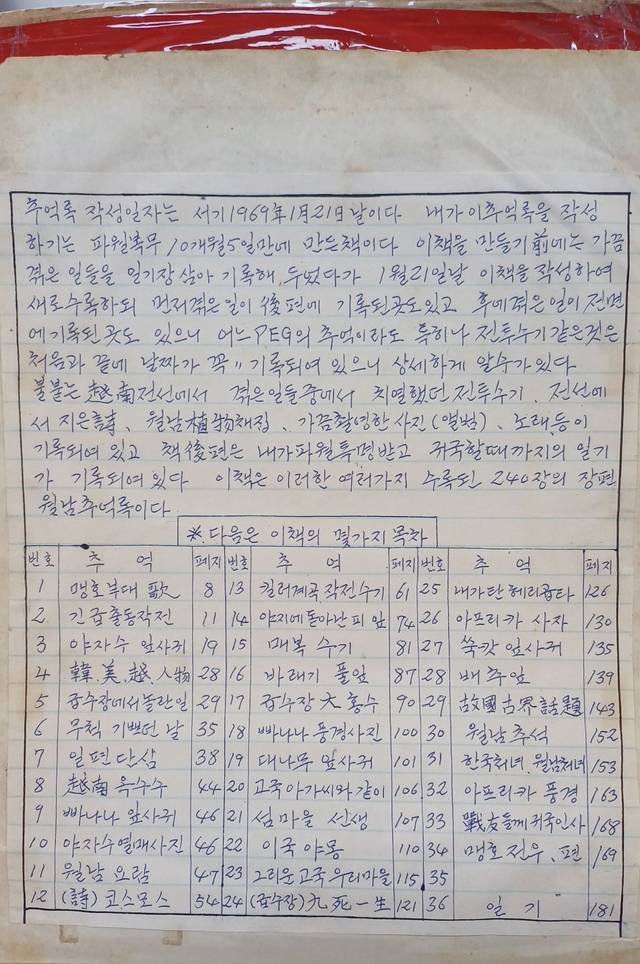 추억록 작성일자는 서기1969年1月21日날이다 내가이추억록을 작성
하기는 파월복무 10개월5일만에 만든책이다 이책을 만들기前에는 가끔
겪은 일들을 일기장 삼아 기록해 두었다가 1月21일날 이책을 작성하여
새로수록하되 먼저겪은일이 後편에 기록된곳도있고 후에겪은일이 전면
에기록된 곳도 있으니 어느 PEG의 추억이라도 특히나 전투수기 같은것은
처음과 끝에 날짜가 꼭〃 기록되여 있으니 상세하게 알수가 있다
불붙는 越南전선에서 겪은일들중에서 치열했던 전투수기, 전선에
서 지은詩, 월남植物채집, 가끔촬영한 사진(앨범), 노래,등이
기록되여 있고 책後편은 내가파월특명받고 귀국할때까지의 일기
가 기록되여있다 이책은 이러한 여러가지 수록된 240장의 장편
월남추억록이다
※.다음은 이책의 몇가지 목차
번호 추 억 페지 번호 추 억 페지 번호 추 억 페지
1 맹호부대 歌 8 13 킬러계곡 작전수기 61 25 내가탄 헤리곱타 126
2 긴급출동작전 11 14 야지에돋아난 피 잎 74 26 아프리카 사자 130
3 야자수 잎사귀 19 15 매복 수기 81 27 쑥캇 잎사귀 135
4 韓,美,越 人物 28 16 바래기 풀잎 87 28 배추잎 139
5 급수장에서 놀란일 29 17 급수장 大 홍수 90 29 故國古界話題 143
6 무척 기쁘던 날 35 18 빠나나 풍경사진 100 30 월남추석 152
7 일편단심 38 19 대나무 잎사귀 101 31 한국처녀.월남처녀 153
8 越南 옥수수 44 20 고국아가씨와같이 106 32 아프리카 풍경 163
9 빠나나 잎사귀 46 21 섬마을 선생 107 33 戰友들께 귀국인사 168
10 야자수열매사진 46 22 이국 야몽 110 34 맹호전우,편 169
11 월남 요람 47 23 그리운고국우리마을 115 35
12 (詩)코스모스 54 24 (급수장)九死一生 121 36 일 기 181